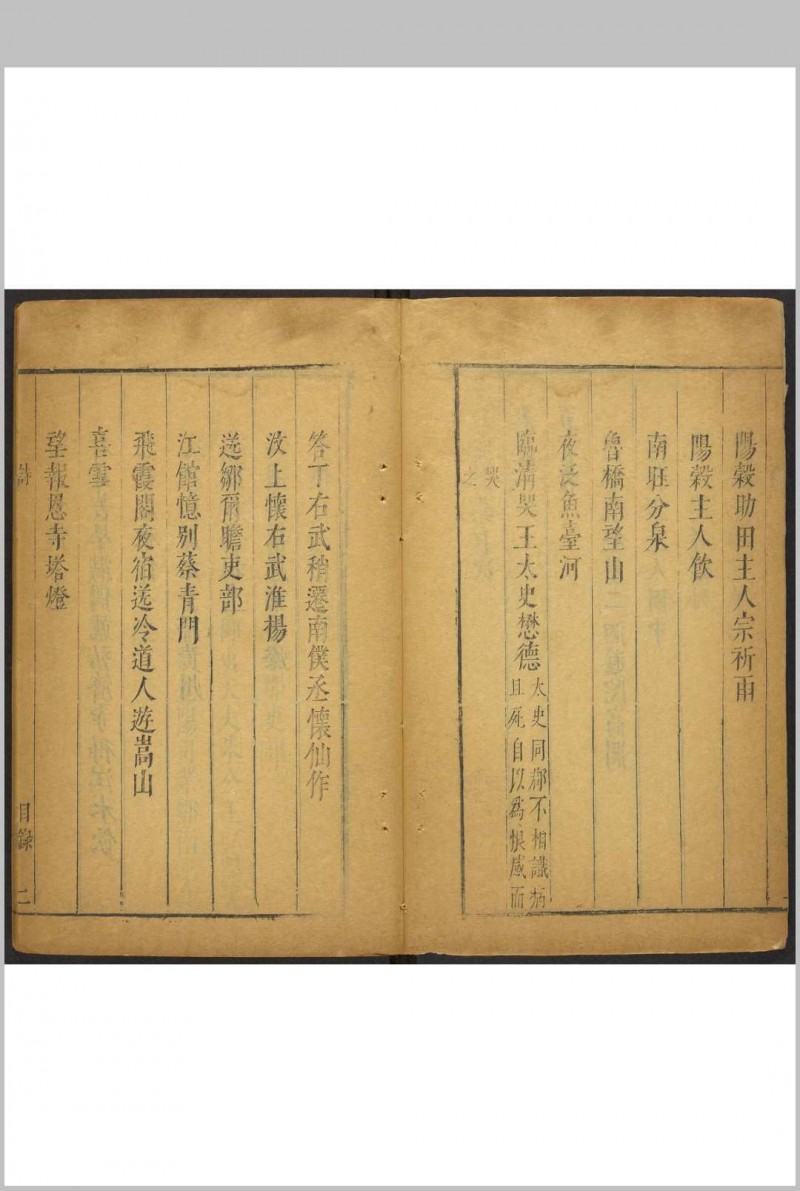 陽穀助田主人宗祈雨
陽穀主人飲
南旺分泉
魯橋南望山
夜泛魚臺河
臨清哭王太史懋德
太史同郡不相識病
且死自以為恨感而
哭
之
答丁右武稍遷南僕丞懷仙作
汶上懷右武淮揚
送鄒爾瞻吏部
江館憶別蔡青門
飛霞閣夜宿送冷道人遊嵩山
喜雪
望報恩寺塔燈
詩
目錄
二